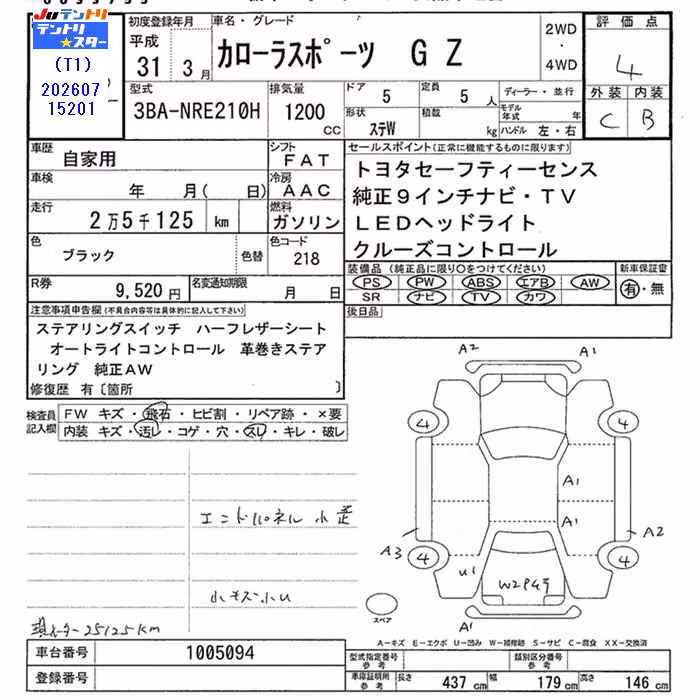 JUテントリ
テントリ★スター
(T1)
202607
15201
初度登録年月
平成
31年 3月
車名・グレード
カローラスポーツ G Z
2WD
・
4WD
評価点
4
外装 内装
C B
型式
3BA-NRE210H
排気量
1200
CC
ドア 5
定員 5人
ディーラー・並行
形状 ステW
積載 kg
モデル年式 年
ハンドル 左・右
車歴 自家用
シフト FAT
車検 年 月( 日)
冷房 AAC
走行 2万5千125 km
燃料 ガソリン
色 ブラック 色替
色コード 218
R券 9,520円
名変通知期限 月 日
セールスポイント(正常に機能するものに限ります)
トヨタセーフティーセンス
純正9インチナビ・TV
LEDヘッドライト
クルーズコントロール
装備品(純正品に限り○をつけてください)
PS PW ABS エアB AW
SR ナビ TV カワ
新車保証書
有・無
後日品
注意事項申告欄(不具合内容等は具体的に記入して下さい)
ステアリングスイッチ ハーフレザーシート
オートライトコントロール 革巻きステア
リング 純正AW
修復歴 有〔箇所 〕
検査員記入欄
FW キズ・飛石・ヒビ割・リペア跡・×要
内装 キズ・汚レ・コゲ・穴・スレ・キレ・破レ
エンドパネル 小歪
小キズ小U
現メーター25125km
A2 A1
4 4
A1
A1
A3 A2
4 4
U1
W2P4号
A1
スペア
A-キズ E-エクボ U-凹み W-補修跡 S-サビ C-腐食 XX-交換済
車台番号 1005094
登録番号
型式指定番号 参考
類別区分番号 参考
車庫証明用 参考 長さ 437cm 幅 179cm 高さ 146cm